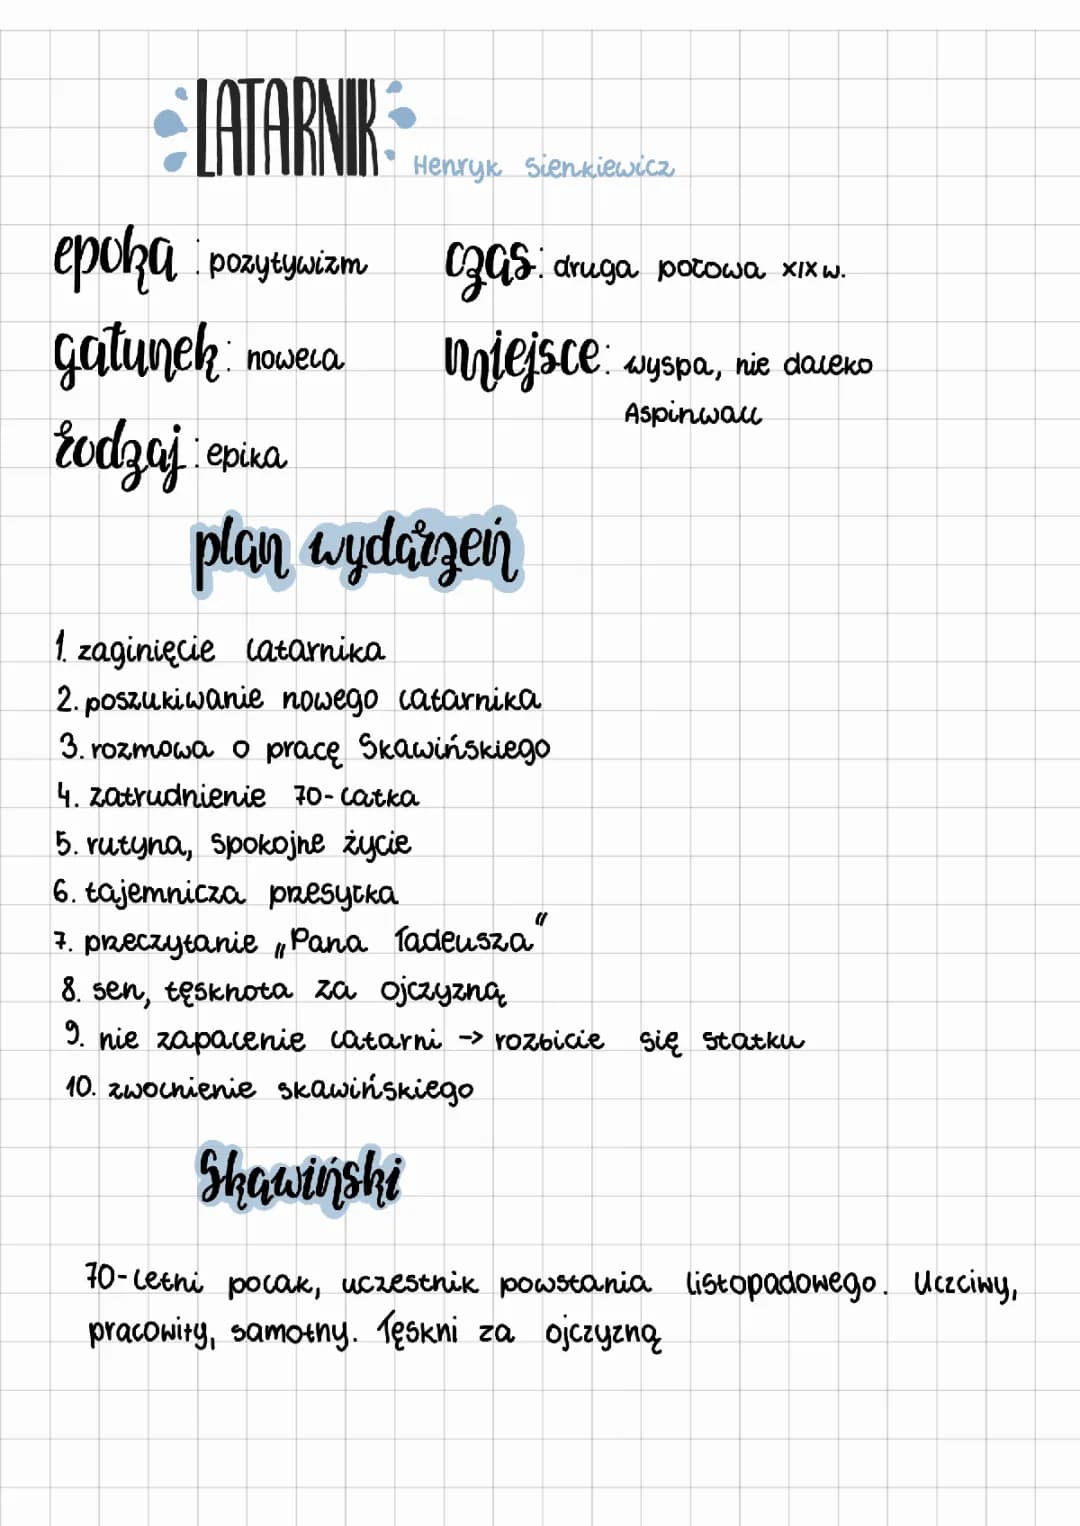 LATARNIK
Henryk Sienkiewicz
epoka: pozytywizm
czas: druga połowa XIX w.
gatunek: nowela
miejsce: wyspa, nie daleko
Aspinwall
rodzaj: epika
plan wydarzeń
1. zaginięcie latarnika
2. poszukiwanie nowego latarnika
3. rozmowa o pracę Skawińskiego
4. zatrudnienie 70-latka
5. rutyna, spokojne życie
6. tajemnicza przesyłka
7. przeczytanie „Pana Tadeusza"
8. sen, tęsknota za ojczyzną
9. nie zapalenie latarni -> rozbicie się statku
10. zwolnienie skawińskiego
Skawiński
70-letni polak, uczestnik powstania listopadowego. Uczciwy,
pracowity, samotny. Tęskni za ojczyzną